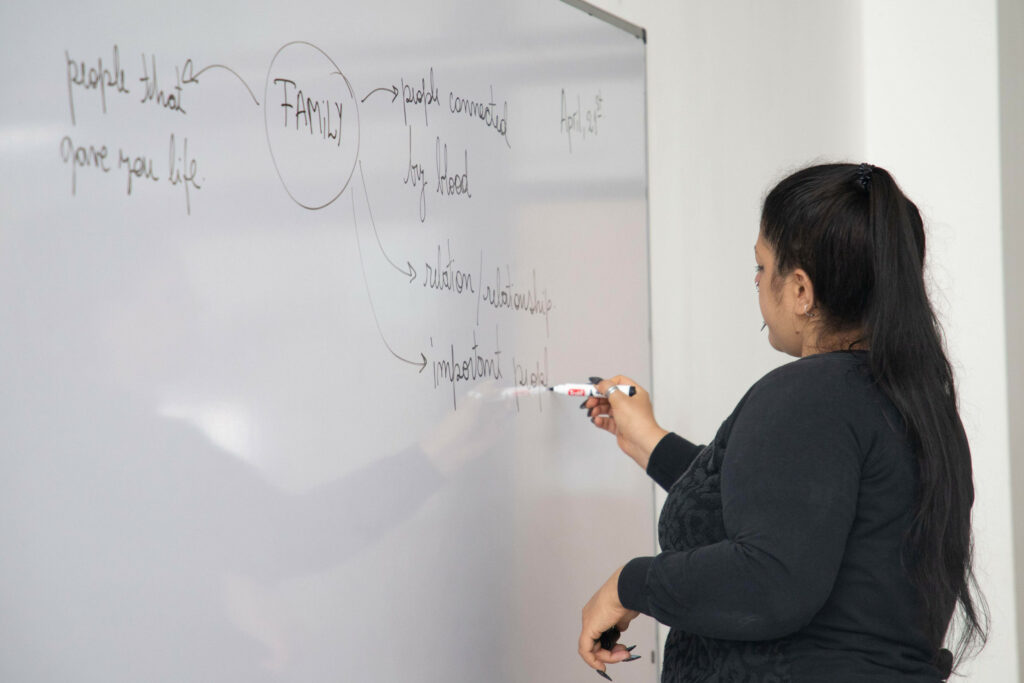 people that
gave you life.
FAMiLY
people connected
by blood
relation/relationship.
important peopl
April,